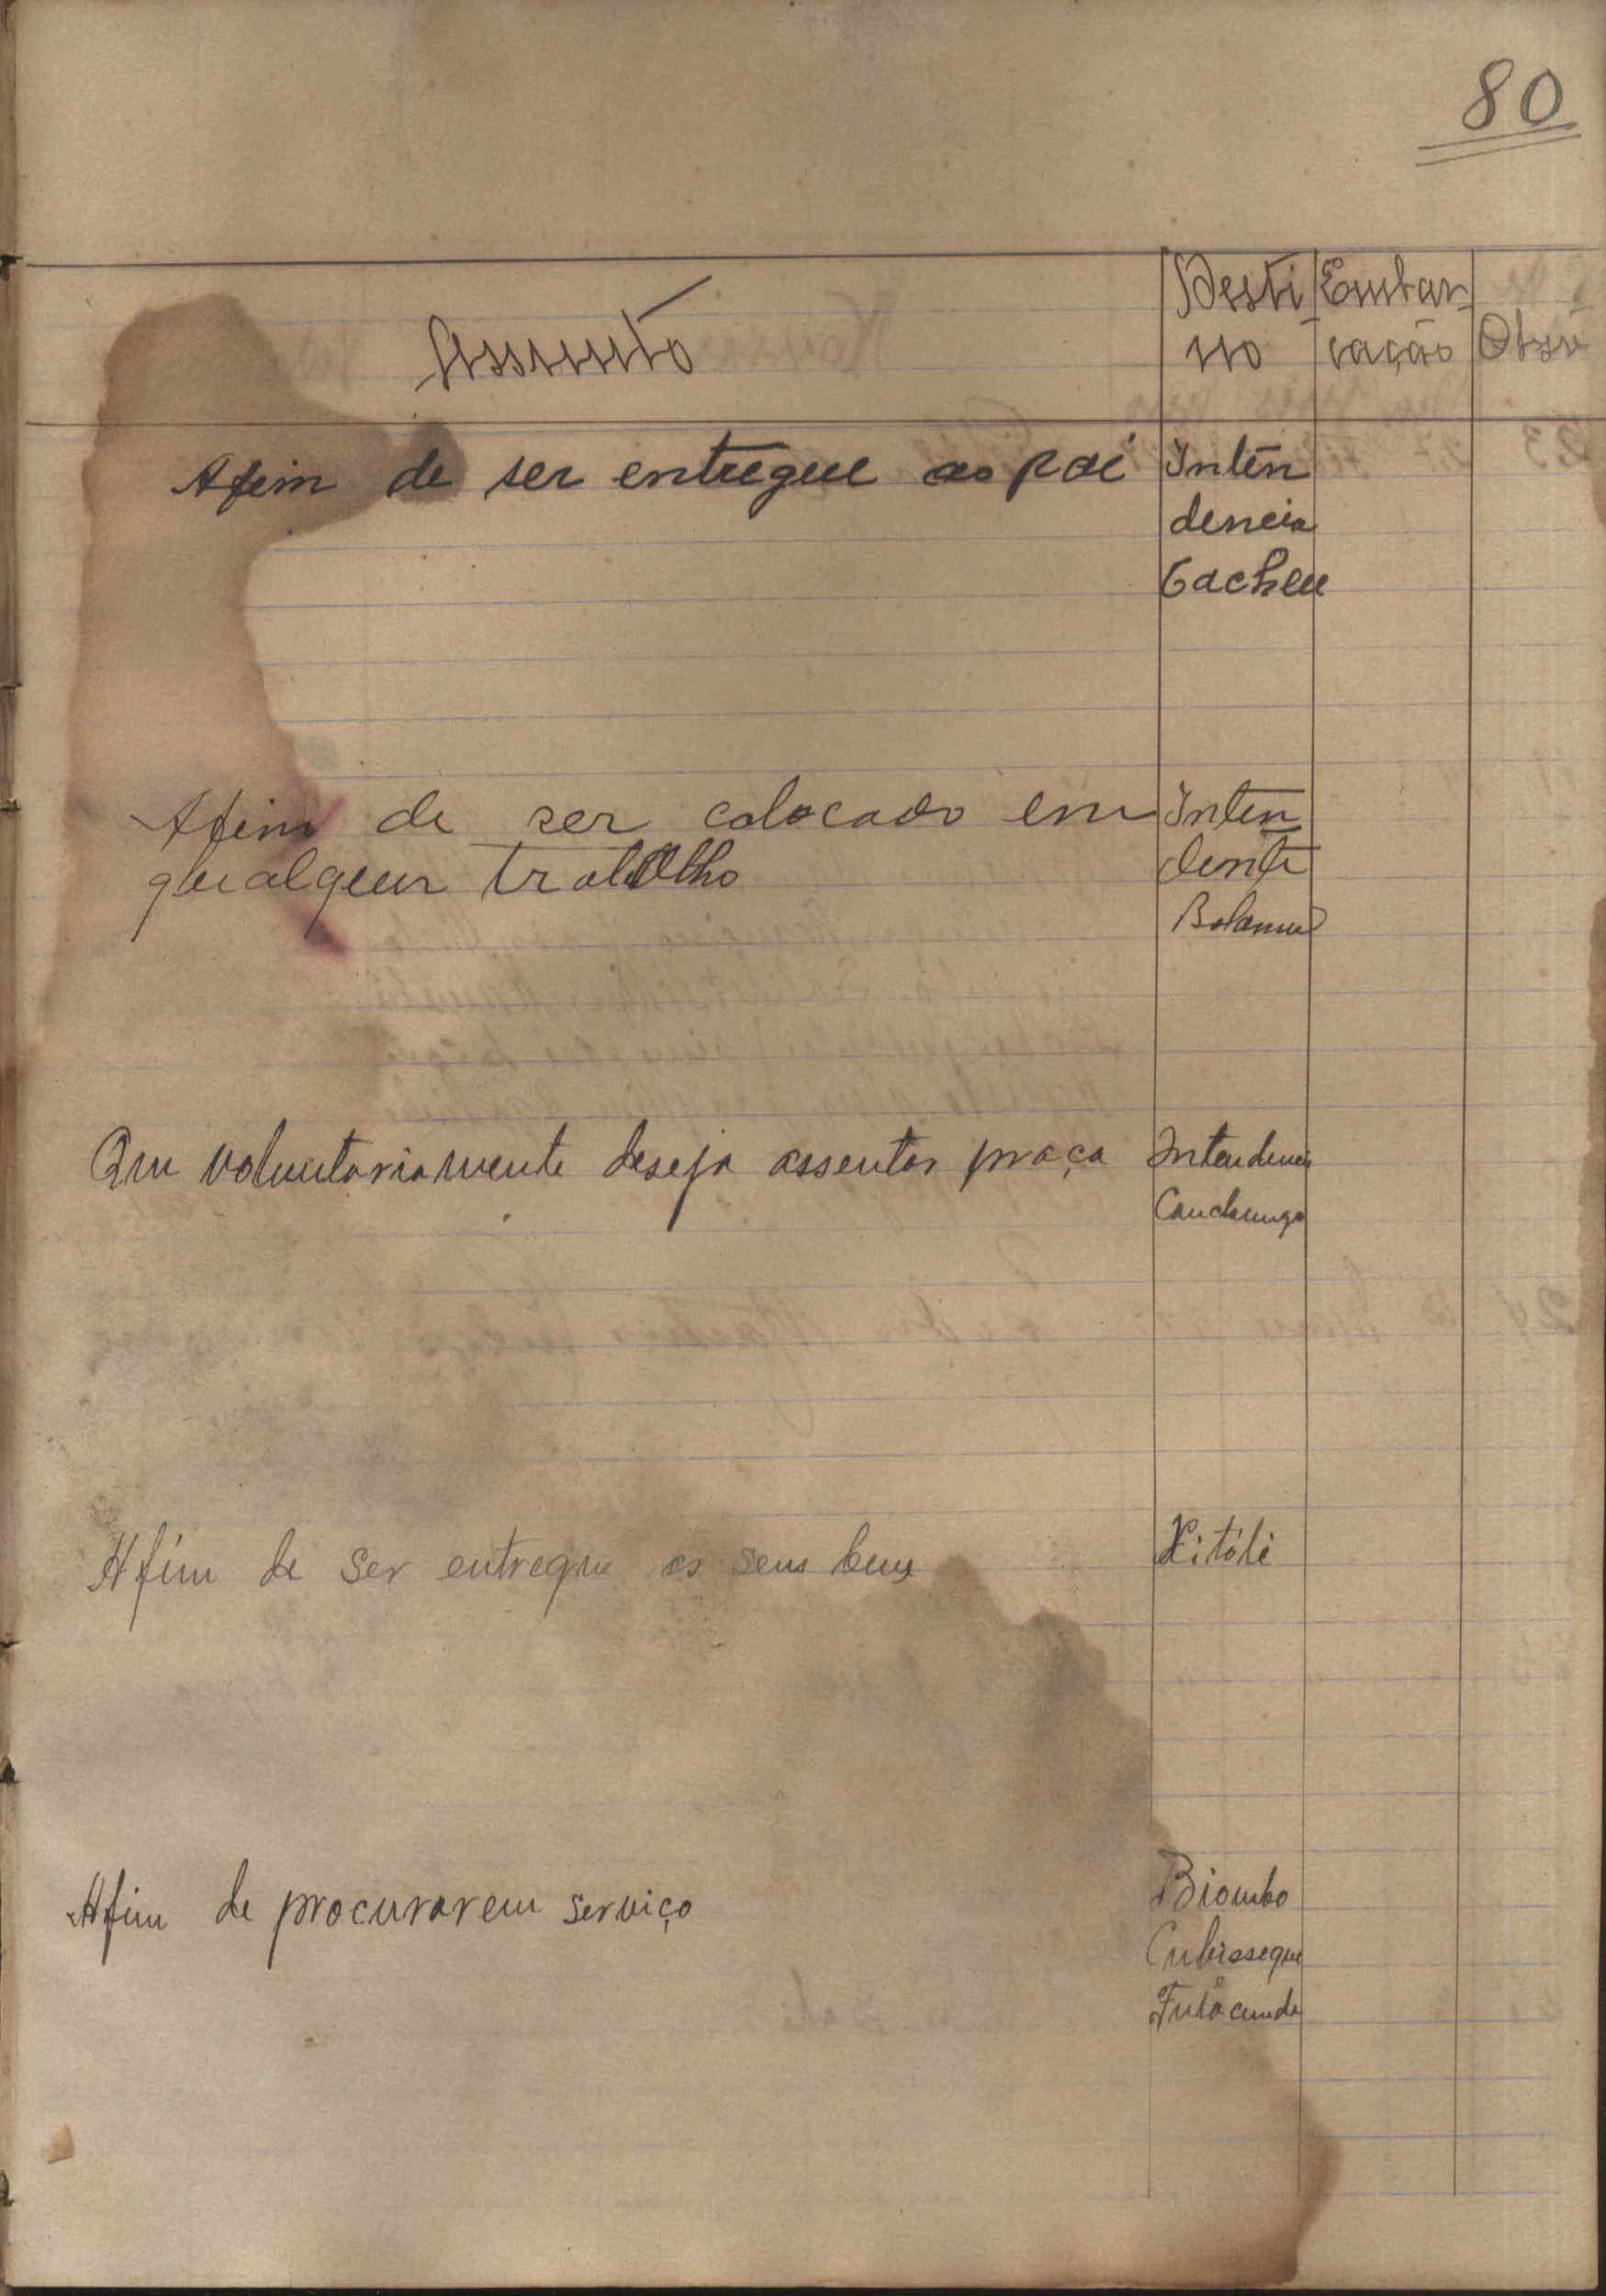 80
Assunto
Desti
no
Embar
cação
Obsv
Afim de ser entregue ao pai
Inten
dencia
Cacheu
Afim de ser colocado em
qualquer trabalho
Inten
dente
Bolama
Que voluntariamente deseja assentar praça
Intendencia
Canchungo
Afim de ser entregue os seus bens
Xitóle
Afim de procurarem serviço
Biombo
Cubisseque
Fulacunda